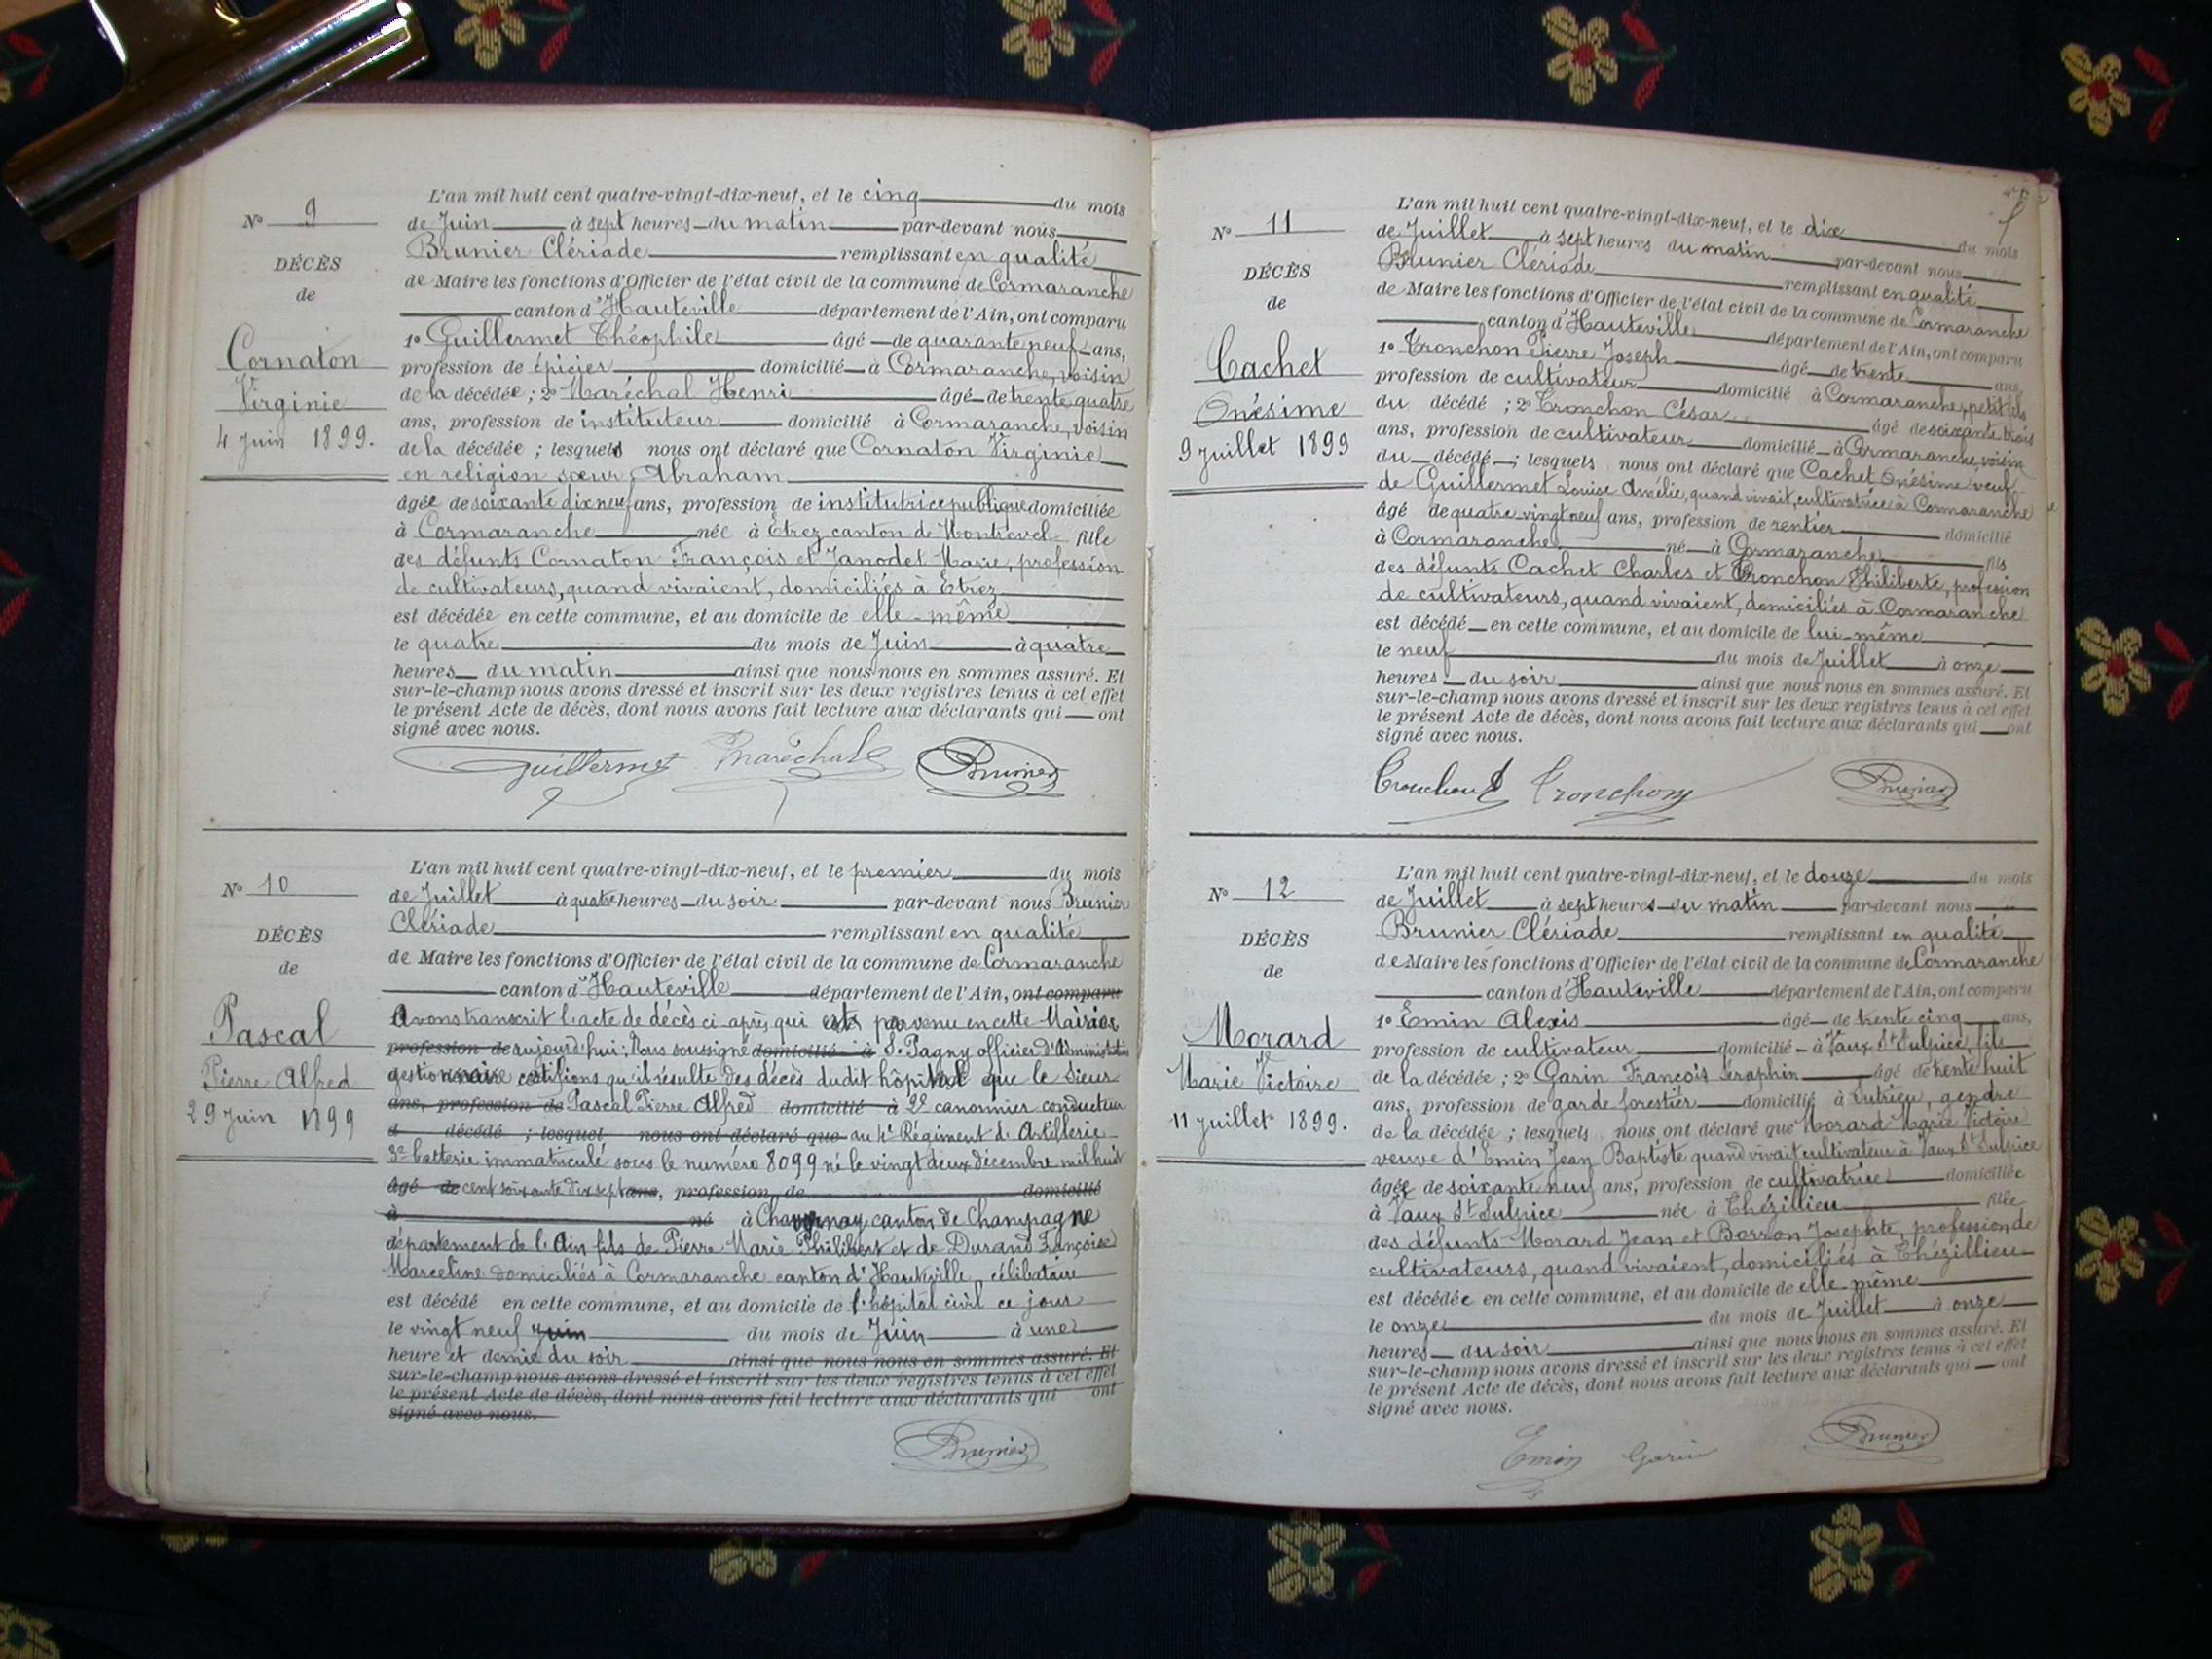 N° 9
DÉCÈS
de
Cornaton
Virginie
4 Juin 1899.
L'an mil huit cent quatre-vingt-dix-neuf, et le cinq du mois
de Juin à sept heures du matin par-devant nous
Brunier Clériade remplissant en qualité
de Maire les fonctions d'Officier de l'état civil de la commune de Cormaranche
canton d'Hauteville département de l'Ain, ont comparu
1° Guillermet Théophile âgé de quarante neuf ans,
profession de épicier domicilié à Cormaranche, voisin
de la décédée ; 2° Maréchal Henri âgé de trente quatre
ans, profession de instituteur domicilié à Cormaranche, voisin
de la décédée ; lesquels nous ont déclaré que Cornaton Virginie
en religion sœur Abraham
âgée de soixante dix neuf ans, profession de institutrice publique domiciliée
à Cormaranche née à Etrez canton de Montrevel fille
des défunts Cornaton François et Janodet Marie, profession
de cultivateurs, quand vivaient, domiciliés à Etrez
est décédée en cette commune, et au domicile de elle-même
le quatre du mois de Juin à quatre
heures du matin ainsi que nous nous en sommes assuré. Et
sur-le-champ nous avons dressé et inscrit sur les deux registres tenus à cet effet
le présent Acte de décès, dont nous avons fait lecture aux déclarants qui ont
signé avec nous.
Guillermet Maréchal Brunier
N° 10
DÉCÈS
de
Pascal
Pierre Alfred
29 Juin 1899
L'an mil huit cent quatre-vingt-dix-neuf, et le premier du mois
de Juillet à quatre heures du soir par-devant nous Brunier
Clériade remplissant en qualité
de Maire les fonctions d'Officier de l'état civil de la commune de Cormaranche
canton d'Hauteville département de l'Ain, ont comparu
Avons transcrit l'acte de décès ci-après qui est parvenu en cette Mairie
profession de aujourd'hui : Nous soussigné domicilié à S. Pagny officier d'Administration
gestionnaire certifions qu'il résulte des décès dudit hôpital que le sieur
ans, profession de Pascal Pierre Alfred domicilié à 2e canonnier conducteur
d décédé ; lesquel nous ont déclaré que au 4e Régiment d'Artillerie
3e batterie immatriculé sous le numéro 8099 né le vingt deux décembre mil huit
âgé de cent soixante dix sept ans, profession de domicilié
à né à canton de Champagne
département de l'Ain fils de Pierre Marie Philibert et de Durand Françoise
Marceline domiciliés à Cormaranche canton d'Hauteville, célibataire
est décédé en cette commune, et au domicile de l'hôpital civil ce jour
le vingt neuf juin du mois de Juin à une
heure et demie du soir ainsi que nous nous en sommes assuré. Et
sur-le-champ nous avons dressé et inscrit sur les deux registres tenus à cet effet
le présent Acte de décès, dont nous avons fait lecture aux déclarants qui ont
signé avec nous.
Brunier
N° 11
DÉCÈS
de
Cachet
Onésime
9 Juillet 1899
L'an mil huit cent quatre-vingt-dix-neuf, et le dix du mois
de Juillet à sept heures du matin par-devant nous
Brunier Clériade remplissant en qualité
de Maire les fonctions d'Officier de l'état civil de la commune de Cormaranche
canton d'Hauteville département de l'Ain, ont comparu
1° Tronchon Pierre Joseph âgé de trente ans,
profession de cultivateur domicilié à Cormaranche, petit fils
du décédé ; 2° Tronchon César âgé de soixante trois
ans, profession de cultivateur domicilié à Cormaranche, voisin
du décédé ; lesquels nous ont déclaré que Cachet Onésime veuf
de Guillermet Louise Amélie, quand vivait, cultivatrice à Cormaranche
âgé de quatre vingt neuf ans, profession de rentier domicilié
à Cormaranche né à Cormaranche fils
des défunts Cachet Charles et Tronchon Philiberte, profession
de cultivateurs, quand vivaient, domiciliés à Cormaranche
est décédé en cette commune, et au domicile de lui-même
le neuf du mois de Juillet à onze
heures du soir ainsi que nous nous en sommes assuré. Et
sur-le-champ nous avons dressé et inscrit sur les deux registres tenus à cet effet
le présent Acte de décès, dont nous avons fait lecture aux déclarants qui ont
signé avec nous.
Tronchon Tronchon Brunier
N° 12
DÉCÈS
de
Morard
Marie Victoire
11 Juillet 1899.
L'an mil huit cent quatre-vingt-dix-neuf, et le douze du mois
de Juillet à sept heures du matin par-devant nous
Brunier Clériade remplissant en qualité
de Maire les fonctions d'Officier de l'état civil de la commune de Cormaranche
canton d'Hauteville département de l'Ain, ont comparu
1° Emin Alexis âgé de trente cinq ans,
profession de cultivateur domicilié à Vaux St Sulpice, fils
de la décédée ; 2° Garin François Séraphin âgé de trente huit
ans, profession de garde forestier domicilié à Sutrieu, gendre
de la décédée ; lesquels nous ont déclaré que Morard Marie Victoire
veuve d'Emin Jean Baptiste quand vivait cultivateur à Vaux St Sulpice
âgée de soixante neuf ans, profession de cultivatrice domiciliée
à Vaux St Sulpice née à Thézillieu fille
des défunts Morard Jean et Borron Josephte, profession de
cultivateurs, quand vivaient, domiciliés à Thézillieu
est décédée en cette commune, et au domicile de elle-même
le onze du mois de Juillet à onze
heures du soir ainsi que nous nous en sommes assuré. Et
sur-le-champ nous avons dressé et inscrit sur les deux registres tenus à cet effet
le présent Acte de décès, dont nous avons fait lecture aux déclarants qui ont
signé avec nous.
Emin Garin Brunier